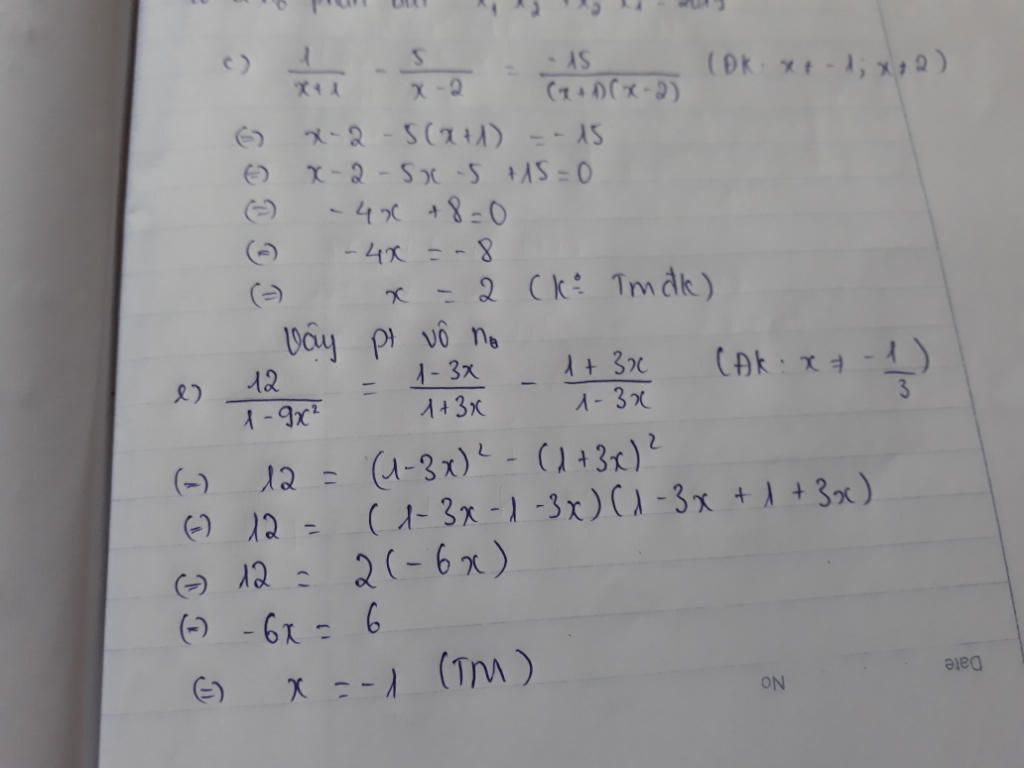 x₁ x₂ + x₂ x₁
c) 1/(x+1) - 5/(x-2) = -15/((x+1)(x-2)) (ĐK: x ≠ -1; x ≠ 2)
(=) x-2 - 5(x+1) = -15
(=) x-2 - 5x -5 +15 = 0
(=) -4x +8 = 0
(=) -4x = -8
(=) x = 2 (K° Tmđk)
Vậy pt vô no
e) 12/(1-9x²) = (1-3x)/(1+3x) - (1+3x)/(1-3x) (ĐK: x ≠ -1/3)
(=) 12 = (1-3x)² - (1+3x)²
(=) 12 = (1-3x-1-3x)(1-3x+1+3x)
(=) 12 = 2(-6x)
(=) -6x = 6
(=) x = -1 (TM)
No
Date